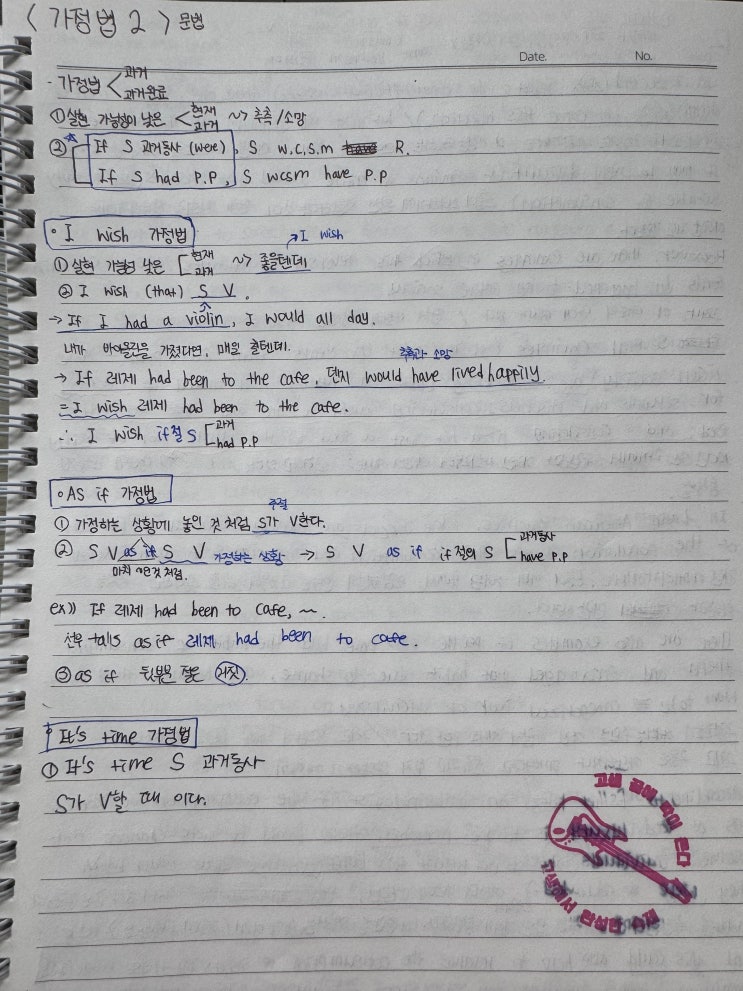 〈 가정법 2 〉 문법
Date. No.
· 가정법 < 과거
과거완료
① 실현 가능성이 낮은 < 현재 ~> 추측 / 소망
과거
② If S 과거동사 (were), S w.c.s.m R.
If S had P.P, S wcsm have P.P
∘ I wish 가정법
→ I wish
① 실현 가능성 낮은 [ 현재 ~> 좋을텐데
과거
② I wish (that) S V.
→ If I had a violin, I would all day.
내가 바이올린을 가졌다면, 매일 출텐데.
추측과 소망
→ If 레제 had been to the cafe, 덴지 would have lived happily.
= I wish 레제 had been to the cafe.
∴ I wish if절 S [ 과거
had P.P
∘ AS if 가정법
주절
① 가정하는 상황에 놓인 것 처럼 S가 V한다.
② S V as if S V 가정하는 상황 → S V as if if절의 S [ 과거동사
have P.P
마치 ~인것 처럼.
ex)) If 레제 had been to cafe, ~.
선우 talls as if 레제 had been to cafe.
③ as if 뒷부분 절은 거짓.
∘ It's time 가정법
① It's time S 과거동사
S가 V할 때 이다.